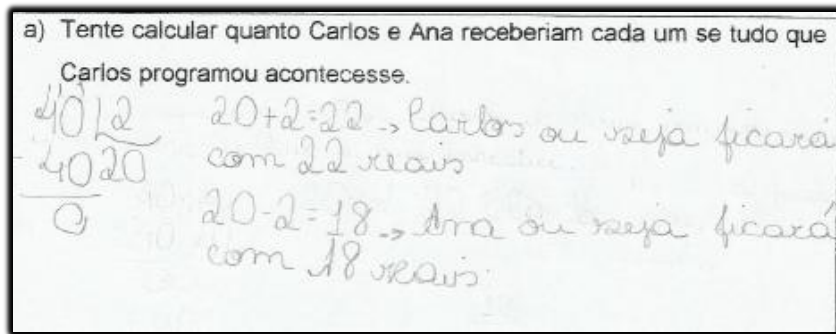 a) Tente calcular quanto Carlos e Ana receberiam cada um se tudo que
Carlos programou acontecesse.
40 |2
- 40 20
0
20+2=22 → Carlos ou seja ficará
com 22 reais
20-2=18 → Ana ou seja ficará
com 18 reais.